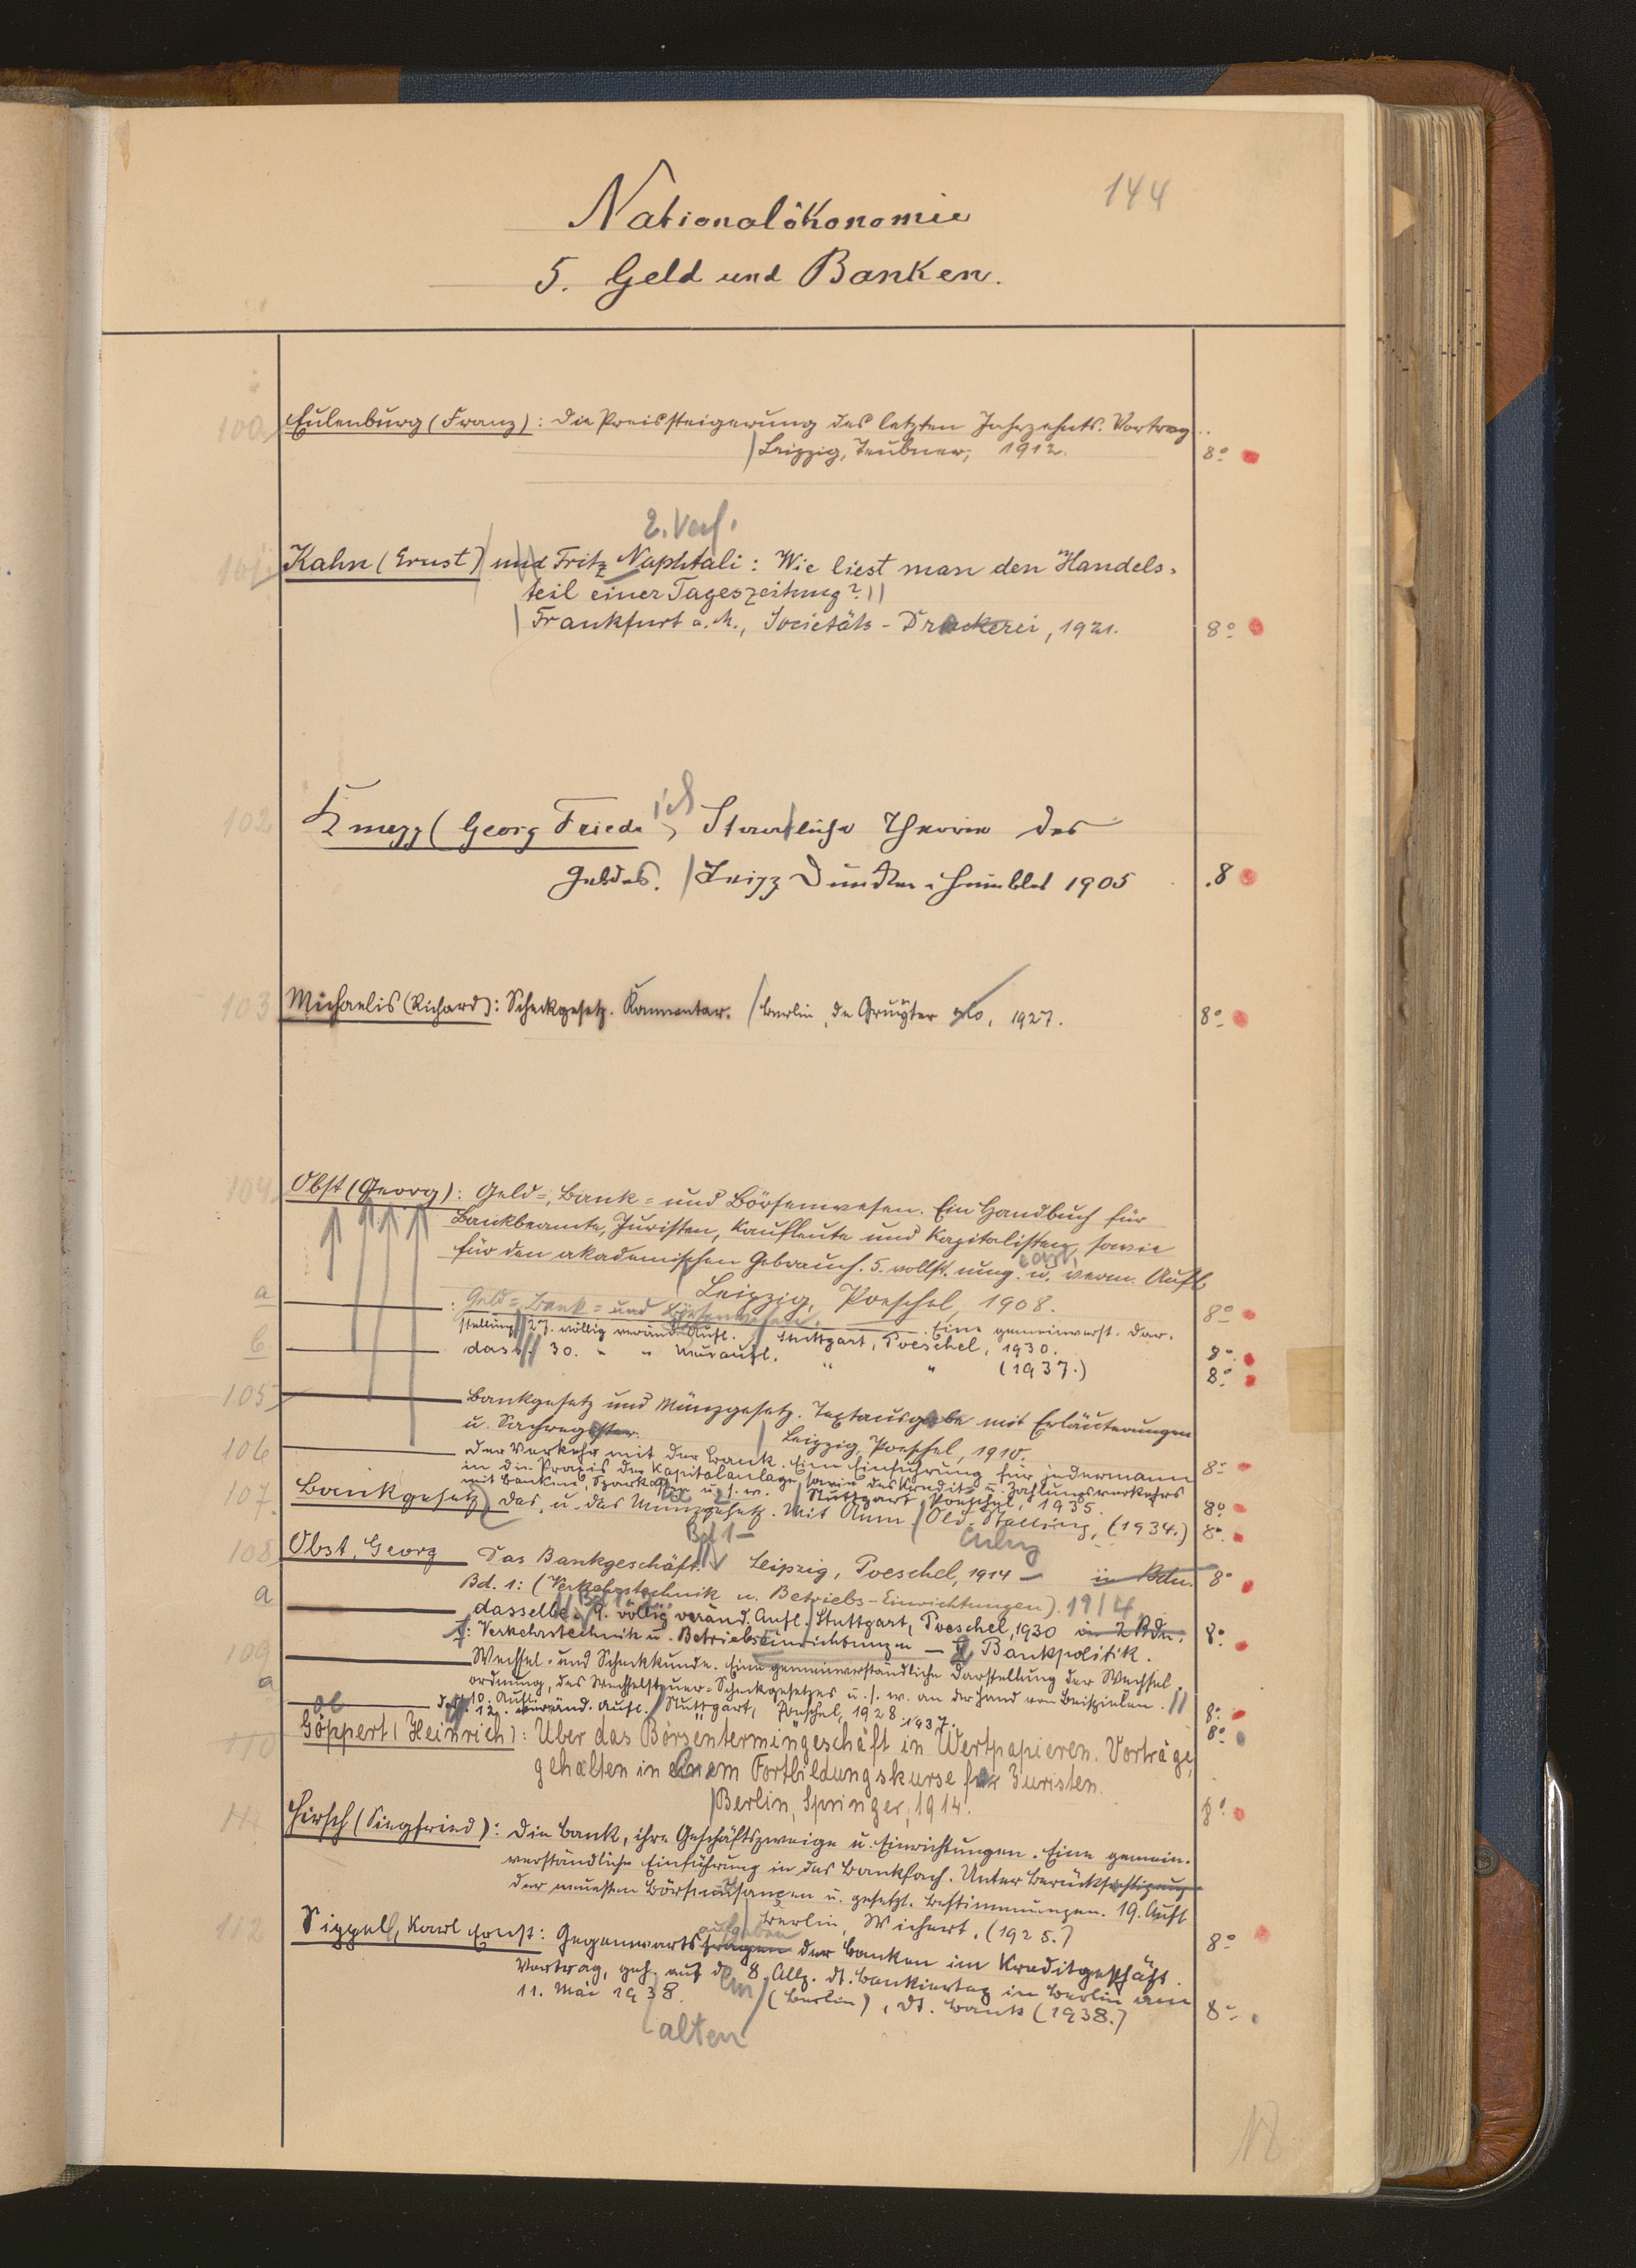 144
Nationalökonomie
5. Geld und Banken.
100 Eulenburg (Franz): Die Preissteigerung des letzten Jahrzehnts. Vortrag.
Leipzig, Teubner, 1912. 8°
2. Verf.
101 Kahn (Ernst) und Fritz Naphtali: Wie liest man den Handels-
teil einer Tageszeitung?
Frankfurt a. M., Societäts-Druckerei, 1921. 8°
102 Knapp (Georg Friedrich) Staatliche Theorie des
Geldes. Leipz Duncker & Humblot 1905 8
103 Michaelis (Richard): Scheckgesetz. Kommentar. Berlin, de Gruyter & Co, 1927. 8°
104 Obst (Georg): Geld-, Bank- und Börsenwesen. Ein Handbuch für
Bankbeamte, Juristen, Kaufleute und Kapitalisten, sowie
für den akademischen Gebrauch. 5. vollst. umg. u. verm. Aufl.
Leipzig, Poeschel, 1908. 8°
a : Geld- Bank- und Börsenwesen. Eine gemeinverst. Dar-
stellung 27. völlig veränd. Aufl. Stuttgart, Poeschel, 1930. 8°
b dass. 30. " " Neuaufl. " " (1937.) 8°
105 Bankgesetz und Münzgesetz. Textausgabe mit Erläuterungen
u. Sachregister. Leipzig, Poeschel, 1910. 8°
106 Der Verkehr mit der Bank. Eine Einführung für jedermann
in die Praxis der Kapitalanlage sowie des Kredits u. Zahlungsverkehrs
mit Banken, Sparkassen u. s. w. Stuttgart Poeschel, 1935. 8°
107. Bankgesetz, das, u. das Münzgesetz. Mit Anm. Old. Stalling, (1934.) 8°
Bd 1-
108 Obst, Georg Das Bankgeschäft. Leipzig, Poeschel, 1914 – in Bdn. 8°
Bd. 1: (Verkehrstechnik u. Betriebs-Einrichtungen). 1914
a dasselbe. 9. völlig veränd. Aufl. Stuttgart, Poeschel, 1930 in 2 Bdn. 8°
I: Verkehrstechnik u. Betriebseinrichtungen – II Bankpolitik.
109 Wechsel- und Scheckkunde. Eine gemeinverständliche Darstellung der Wechsel-
ordnung, des Wechselsteuer-Scheckgesetzes u. s. w. an der Hand von Beispielen.
10. Aufl. Stuttgart, Poeschel, 1928 8°
a dass. 12. veränd. Aufl. " " 1937. 8°
110 Göppert (Heinrich): Über das Börsentermingeschäft in Wertpapieren. Vorträge,
gehalten in einem Fortbildungskurse für Juristen.
Berlin, Springer, 1914. 8°
111 Hirsch (Siegfried): Die Bank, ihre Geschäftszweige u. Einrichtungen. Eine gemein-
verständliche Einführung in das Bankfach. Unter Berücksichtigung
der neuesten Börsenusancen u. gesetzl. Bestimmungen. 19. Aufl.
Berlin, Wichert, (1925.) 8°
aufgaben
112 Sippel, Karl Ernst: Gegenwartsfragen der Banken im Kreditgeschäft.
Vortrag, geh. auf d. 8. Allg. dt. Bankiertag in Berlin am
11. Mai 1938. (Berlin), Dt. Bank (1938.) 8°
alten